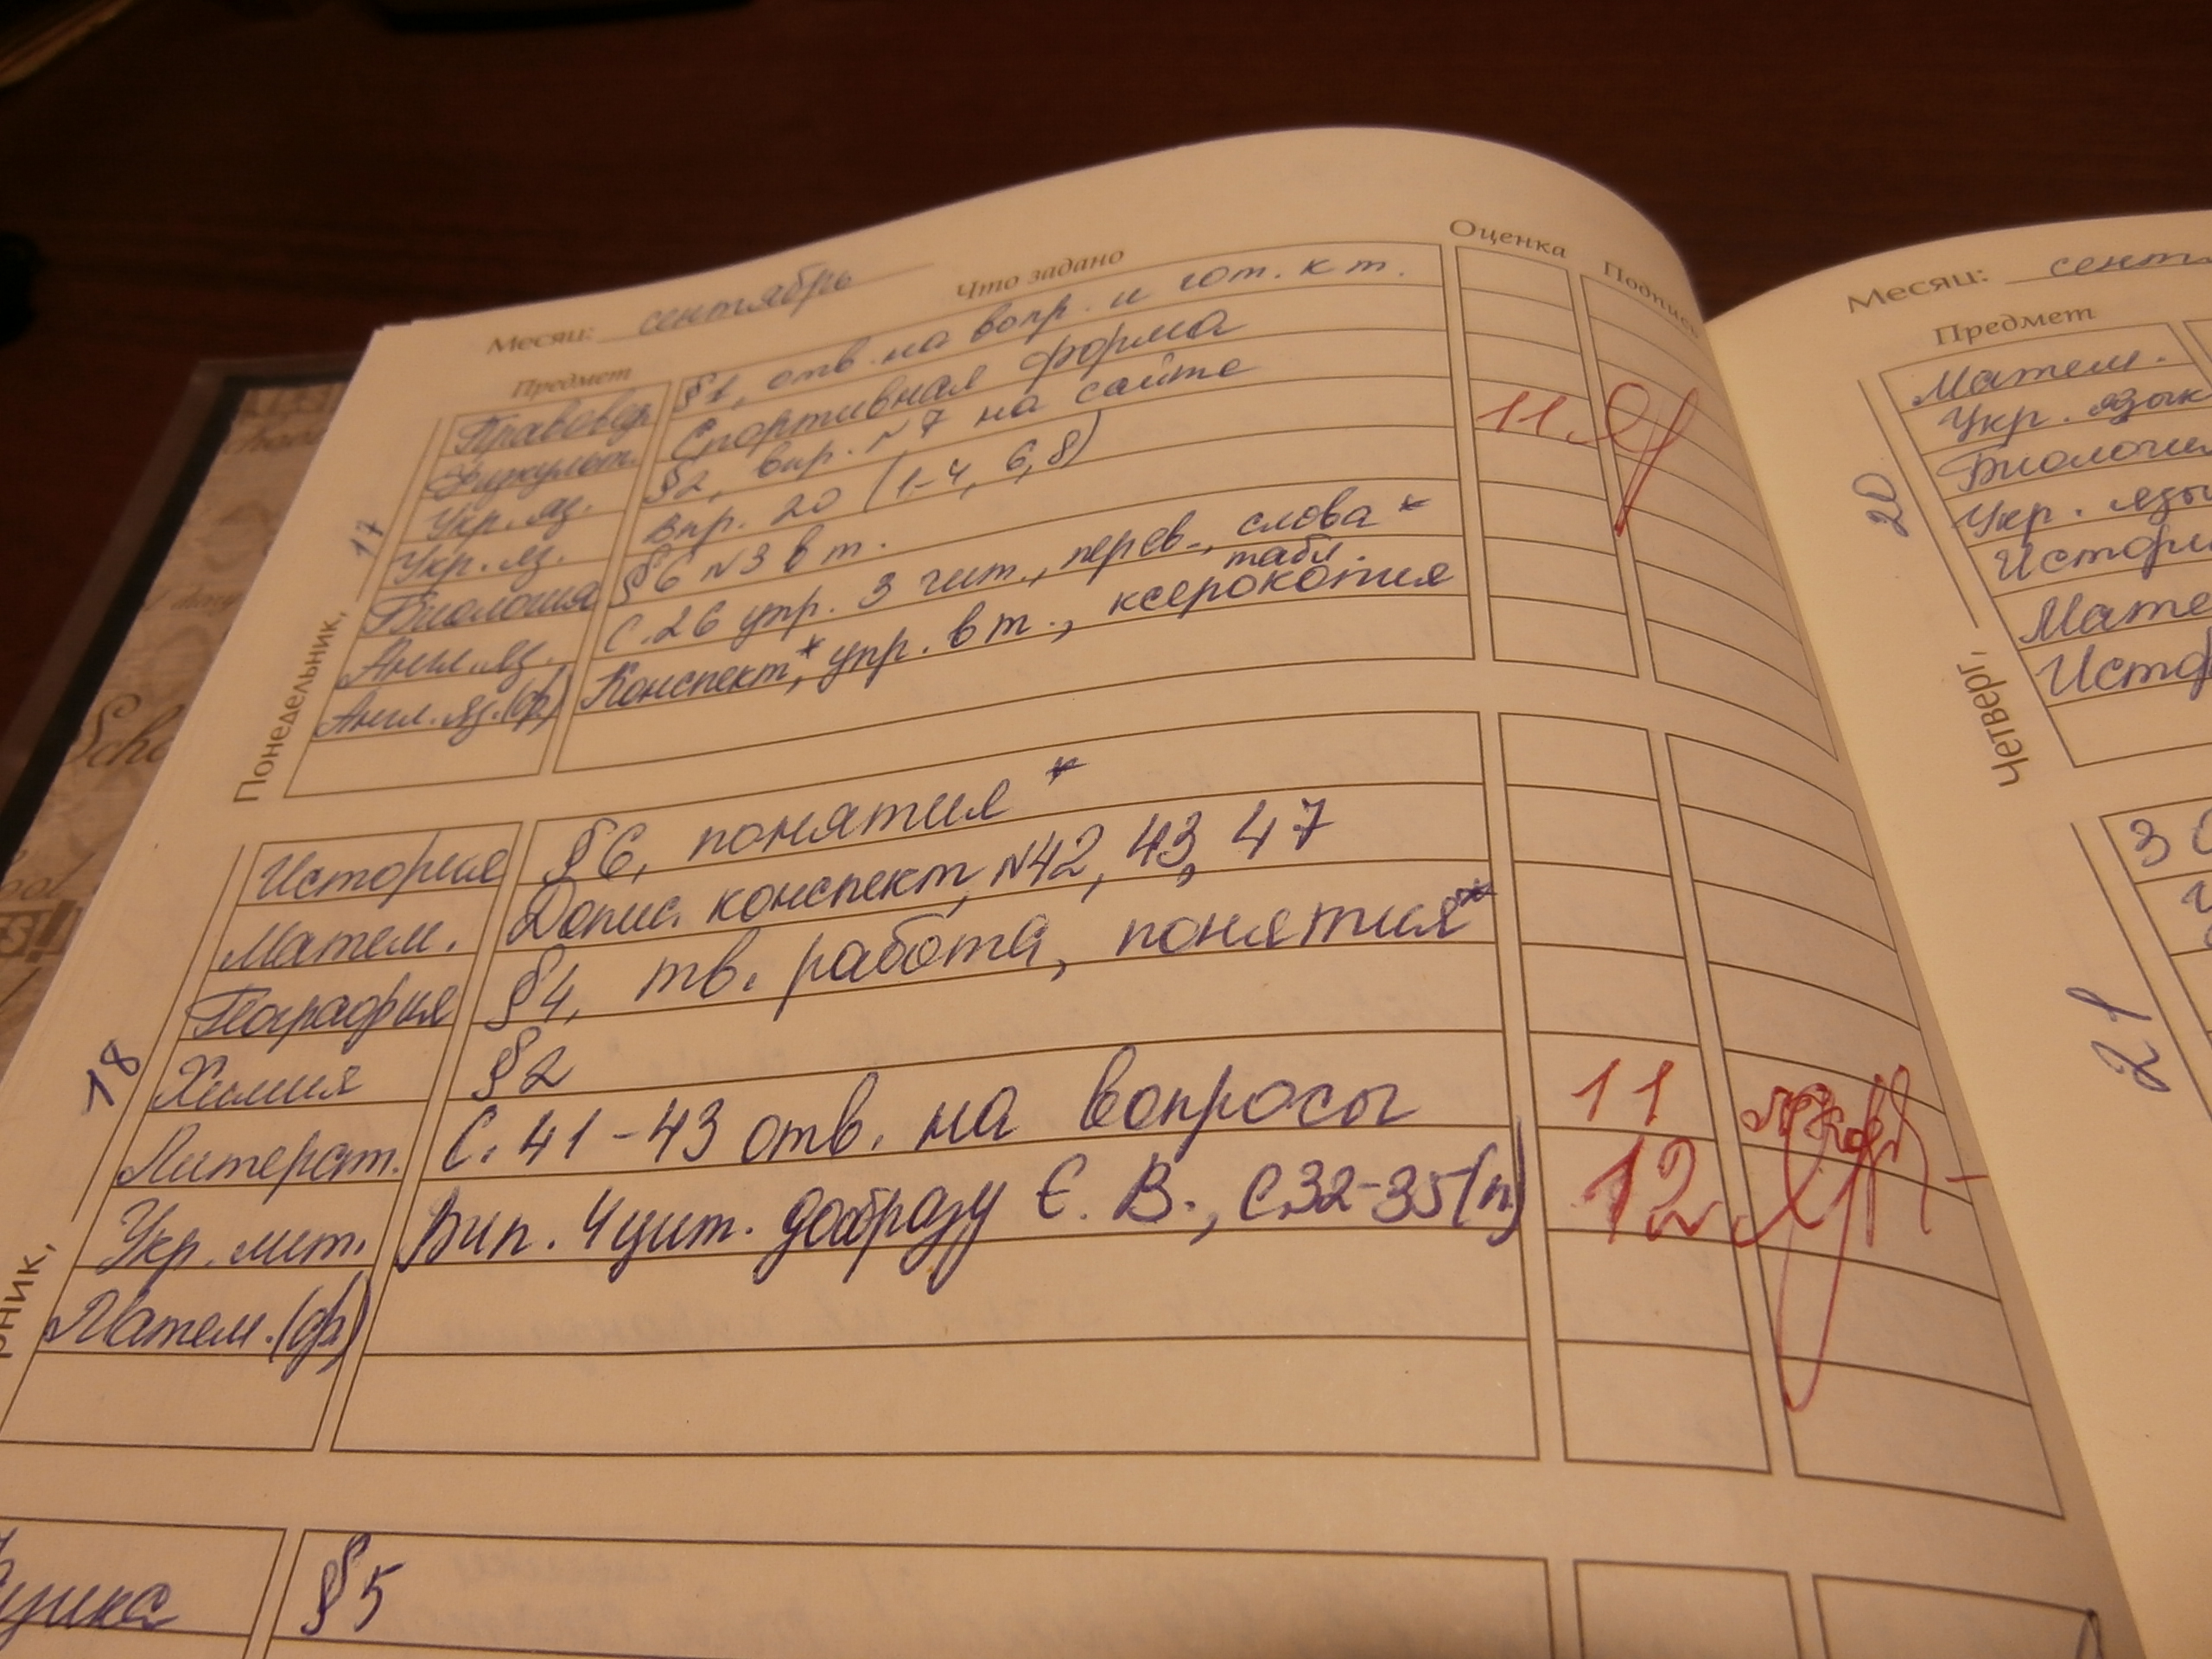 Месяц: сентябрь
Предмет Что задано Оценка Подпись
Понедельник, 17
Правовед. §1, отв. на вопр. и гот. к т.
Физкульт. Спортивная форма
Укр. яз. §2, впр. №7 на сайте
Укр. яз. Впр. 20 (1-4, 6, 8) 11
Биология §6 №3 в т.
Англ. яз. С.26 упр. 3 чит., перев., слова*
табл.
Англ. яз. (ф) Конспект*, упр. в т., ксерокопия
рник, 18
История §6, понятия*
Матем. Допис. конспект, №42, 43, 47
География §4, тв. работа, понятия*
Химия §2
Литерат. С. 41-43 отв. на вопросы 11
Укр. лит. Вип. 4 цит. до образу Є. В., С.32-35(п.) 12
Матем. (ф)
§5
Месяц: сент
Предмет
Четверг, 20
Матем.
Укр. язык
Биологи
Укр. язы
Истори
Мате
Истор
21